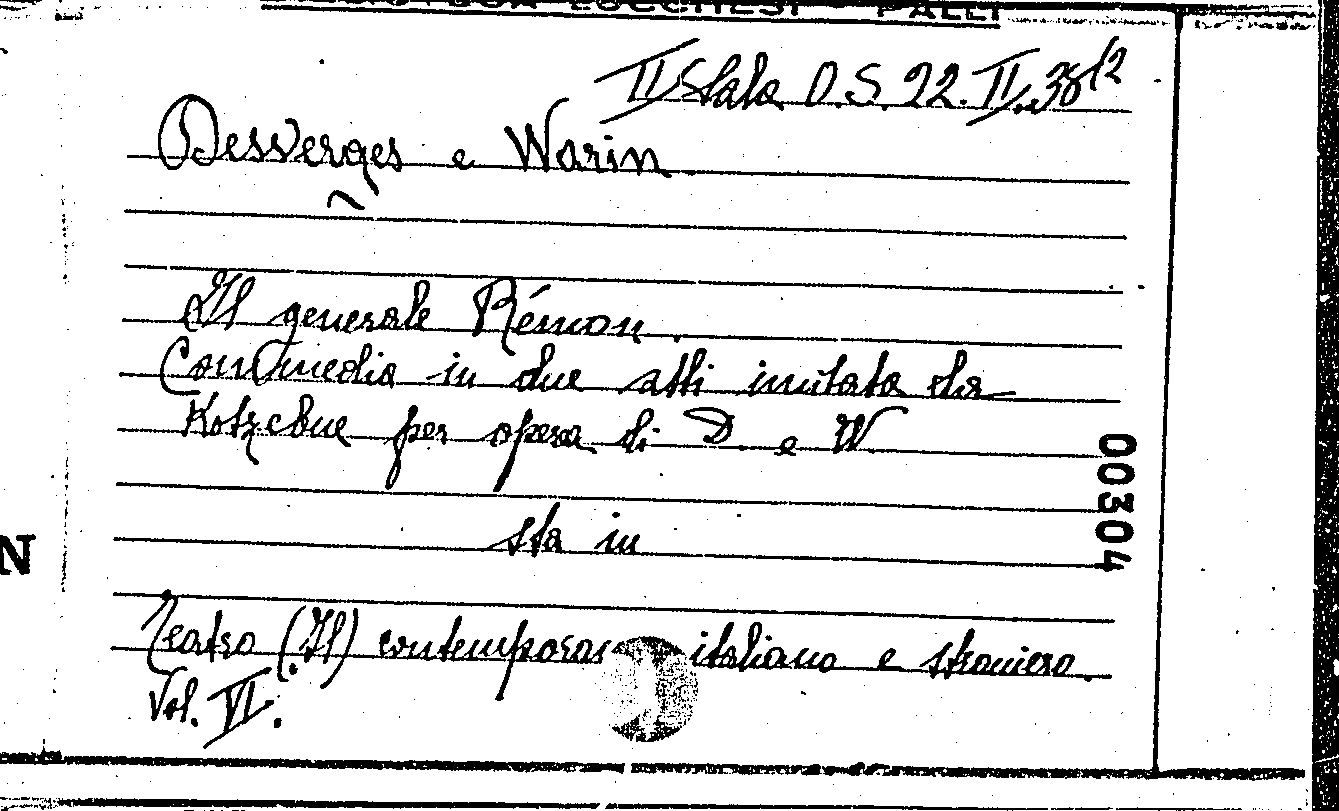 LUCCHESI - PALLI
II Sala O.S. 22. II. 38/2
Desverges e Warin
Il generale Rémon.
Commedia in due atti imitata da
Kotzebue per opera di D. e W.
sta in
Teatro (Il) contemporan italiano e straniero.
Vol. VI.
00304
N